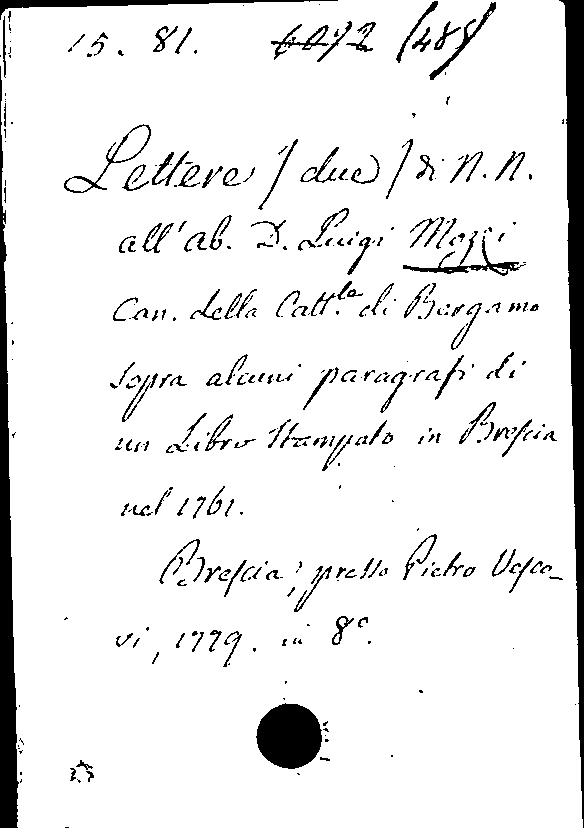 15. 81. 6072 (48
Lettere / due / di N. N.
all'ab. D. Luigi Mozzi
Can. della Catt.le di Bergamo
sopra alcuni paragrafi di
un Libro stampato in Brescia
nel 1761.
Brescia, presso Pietro Vesco-
vi, 1779. in 8o.